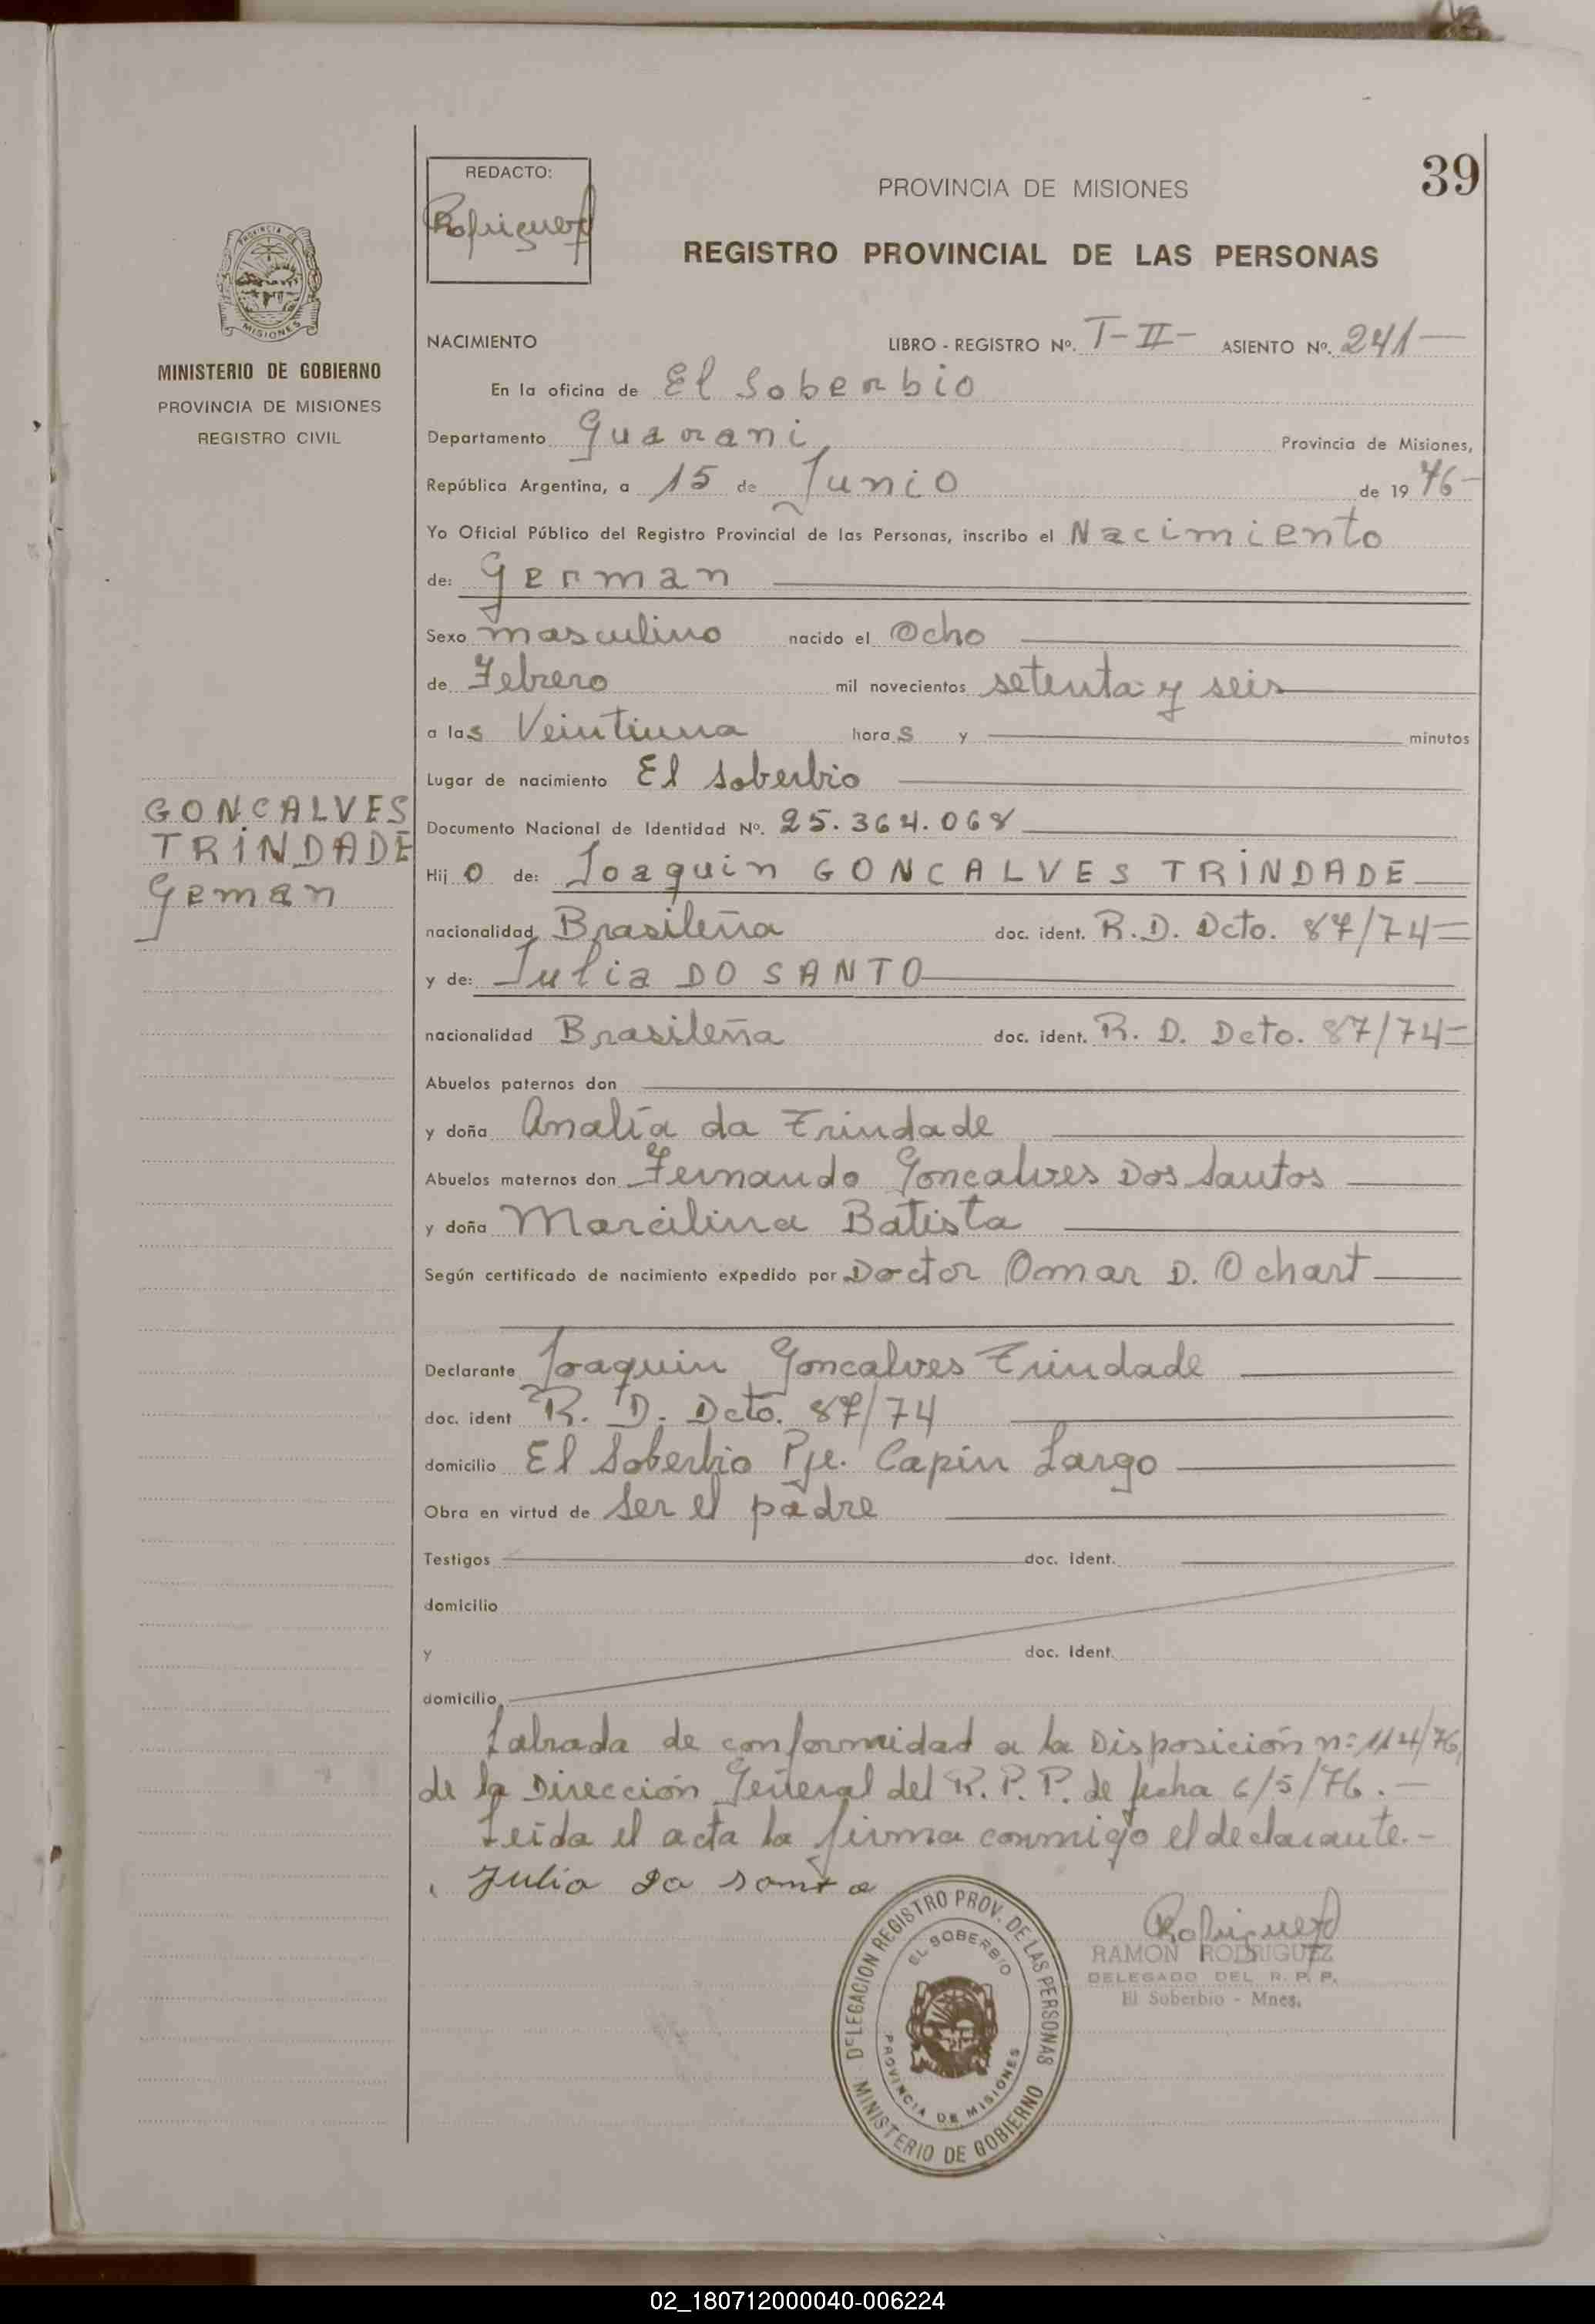 39
REDACTO:
Rodriguez
PROVINCIA DE MISIONES
REGISTRO PROVINCIAL DE LAS PERSONAS
PROVINCIA DE
MISIONES
MINISTERIO DE GOBIERNO
PROVINCIA DE MISIONES
REGISTRO CIVIL
NACIMIENTO LIBRO - REGISTRO Nº. T-II- ASIENTO Nº. 241—
En la oficina de El Soberbio
Departamento Guarani Provincia de Misiones,
República Argentina, a 15 de Junio de 19 76-
Yo Oficial Público del Registro Provincial de las Personas, inscribo el Nacimiento
de: German
Sexo masculino nacido el Ocho
de Febrero mil novecientos setenta y seis
a las Veintiuna horas y minutos
Lugar de nacimiento El Soberbio
GONCALVES
TRINDADE
Geman
Documento Nacional de Identidad Nº. 25.364.068
Hijo de: Joaquin GONCALVES TRINDADE
nacionalidad Brasileña doc. ident. R.D. Dcto. 87/74=
y de: Julia DO SANTO
nacionalidad Brasileña doc. ident. R. D. Dcto. 87/74=
Abuelos paternos don
y doña Analía da Trindade
Abuelos maternos don Fernando Goncalves Dos Santos
y doña Marcilina Batista
Según certificado de nacimiento expedido por Doctor Omar D. Ochart
Declarante Joaquin Goncalves Trindade
doc. ident R. D. Dcto. 87/74
domicilio El Soberbio Pje. Capin Largo
Obra en virtud de Ser el padre
Testigos doc. ident.
domicilio
y doc. ident.
domicilio
Labrada de conformidad a la Disposición nº 114/76,
de la Dirección General del R. P. P. de fecha 6/5/76.—
Leída el acta la firma conmigo el declarante.-
Julio do santo
Rodriguez
RAMON RODRIGUEZ
DELEGADO DEL R. P. P.
El Soberbio - Mnes.
DELEGACION REGISTRO PROV. DE LAS PERSONAS
EL SOBERBIO
PROVINCIA DE MISIONES
MINISTERIO DE GOBIERNO
02_180712000040-006224